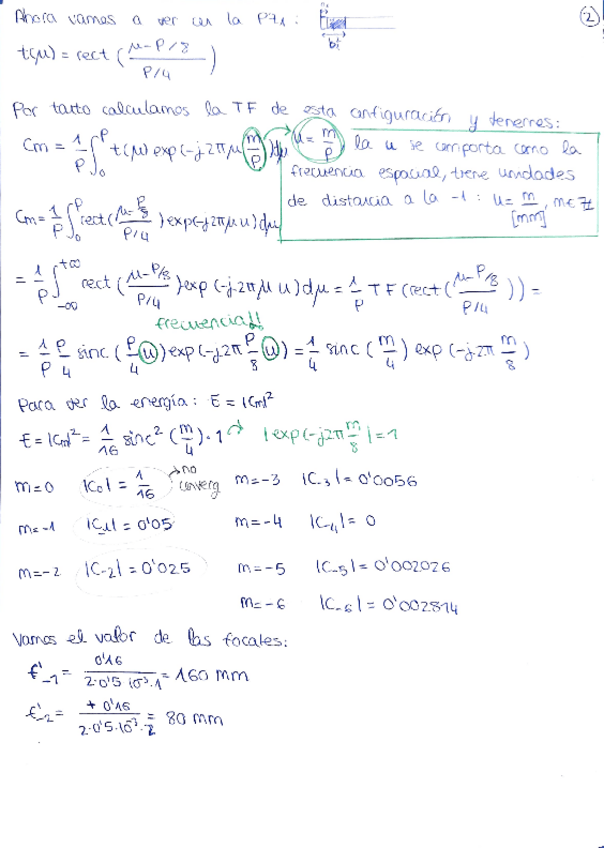 ②
Ahora vamos a ver con la P71:
b'i
t(μ) = rect( (μ-P/8) / (P/4) )
Por tanto calculamos la TF de esta configuración y tenemos:
Cm = 1/P ∫₀^P t(μ) exp(-j2πμ (m/P)) dμ
u = m/P la u se comporta como la
frecuencia espacial, tiene unidades
de distancia a la -1: u = m/[mm], m∈Z
Cm = 1/P ∫₀^P rect( (μ-P/8) / (P/4) ) exp(-j2πμ u) dμ
= 1/P ∫_{-∞}^{+∞} rect( (μ-P/8) / (P/4) ) exp(-j2πμ u) dμ = 1/P TF(rect( (μ-P/8) / (P/4) )) =
frecuencia!!
= 1/P P/4 sinc(P/4 u) exp(-j2π P/8 u) = 1/4 sinc(m/4) exp(-j2π m/8)
Para ver la energía: E = |Cm|²
E = |Cm|² = 1/16 sinc²(m/4)·1 → |exp(-j2π m/8)| = 1
m=0 |C₀| = 1/16 → no converg m=-3 |C₋₃| = 0'0056
m=-1 |C₋₁| = 0'05 m=-4 |C₋₄| = 0
m=-2 |C₋₂| = 0'025 m=-5 |C₋₅| = 0'002026
m=-6 |C₋₆| = 0'002814
Vamos el valor de las focales:
f'₋₁ = 0'16 / (2·0'5·10⁻³·1) = 160 mm
f'₋₂ = +0'16 / (2·0'5·10⁻³·2) = 80 mm